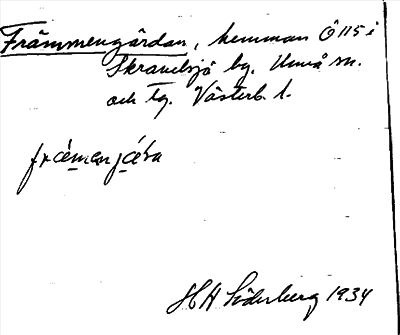 Främmengårdan, hemman Ö 115 i
Skravelsjö by, Umeå sn.
och tg. Västerb. l.
frǽmengɑ́ṣḍa
H H Söderberg 1934